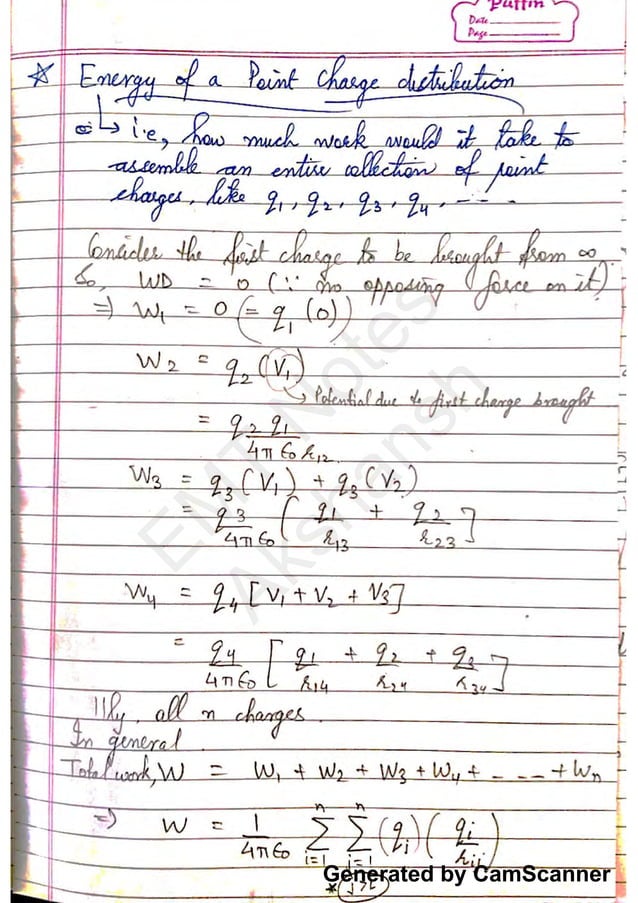 Puffin
Date
Page
☆ Energy of a Point Charge distribution
↳ i.e, how much work would it take to
assemble an entire collection of point
charges, like q1, q2, q3, q4, ----
Consider the first charge to be brought from ∞
So, WD = 0 (∵ no opposing force on it)
⇒ W1 = 0 (= q1 (0))
W2 = q2 (V1)
↳ Potential due to first charge brought
= q2 q1 / 4π ε0 r12.
W3 = q3 (V1) + q3 (V2)
= q3 / 4π ε0 [ q1 / r13 + q2 / r23 ]
W4 = q4 [V1 + V2 + V3]
= q4 / 4π ε0 [ q1 / r14 + q2 / r24 + q3 / r34 ]
111ly, all n charges.
In general
Total work, W = W1 + W2 + W3 + W4 + - - - + Wn
⇒ W = 1 / 4π ε0 n Σ i=1 n Σ j=1 (qi) ( qj / rij )
* j>i
EMT Notes
Akshansh
Generated by CamScanner